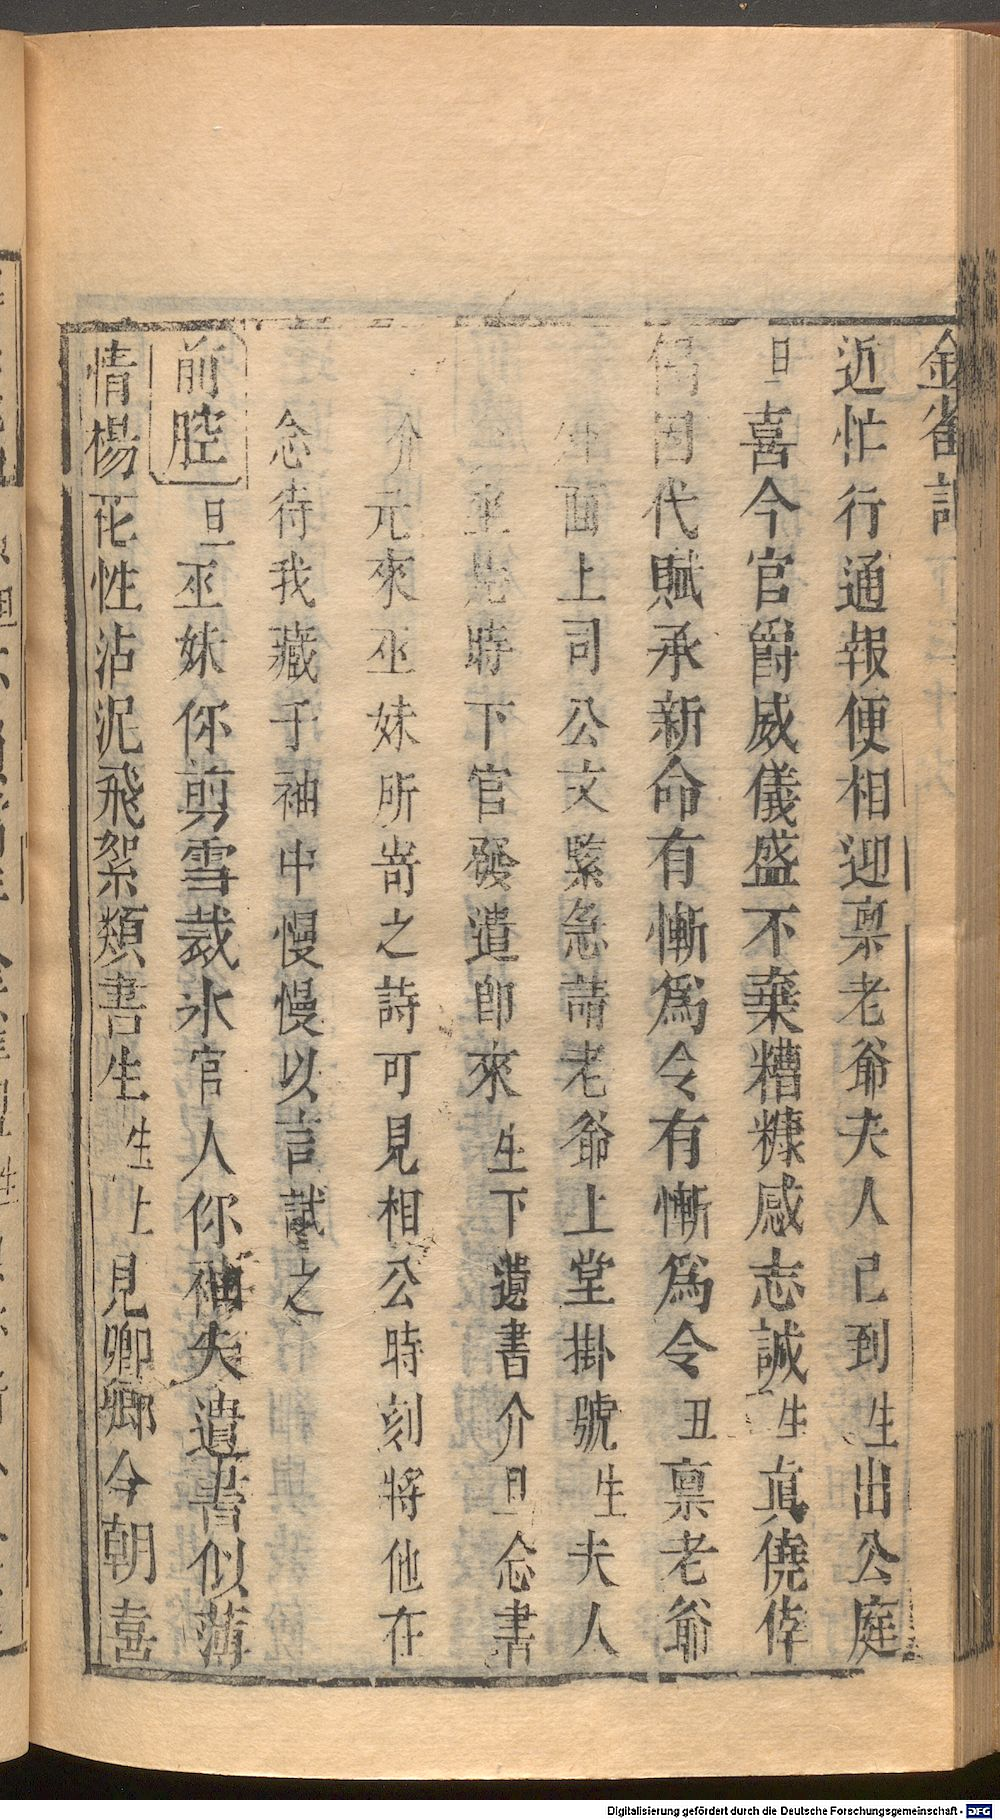 金雀記
近忙行通報便相迎稟老爺夫人已到生出公庭
旦喜今官爵威儀盛不棄糟糠感志誠生真僥倖
因代賦承新命有慚為令有慚為令丑稟老爺
面上司公文緊急請老爺上堂掛號生夫人
坐片時下官發遣即來生下遺書介旦念書
介元來巫妹所寄之詩可見相公時刻將他在
念待我藏于袖中慢慢以言試之
前腔旦巫妹你剪雪裁氷官人你袖失遺書似薄
情楊花性沾泥飛絮類書生生上見卿卿今朝喜
Digitalisierung gefördert durch die Deutsche Forschungsgemeinschaft - DFG